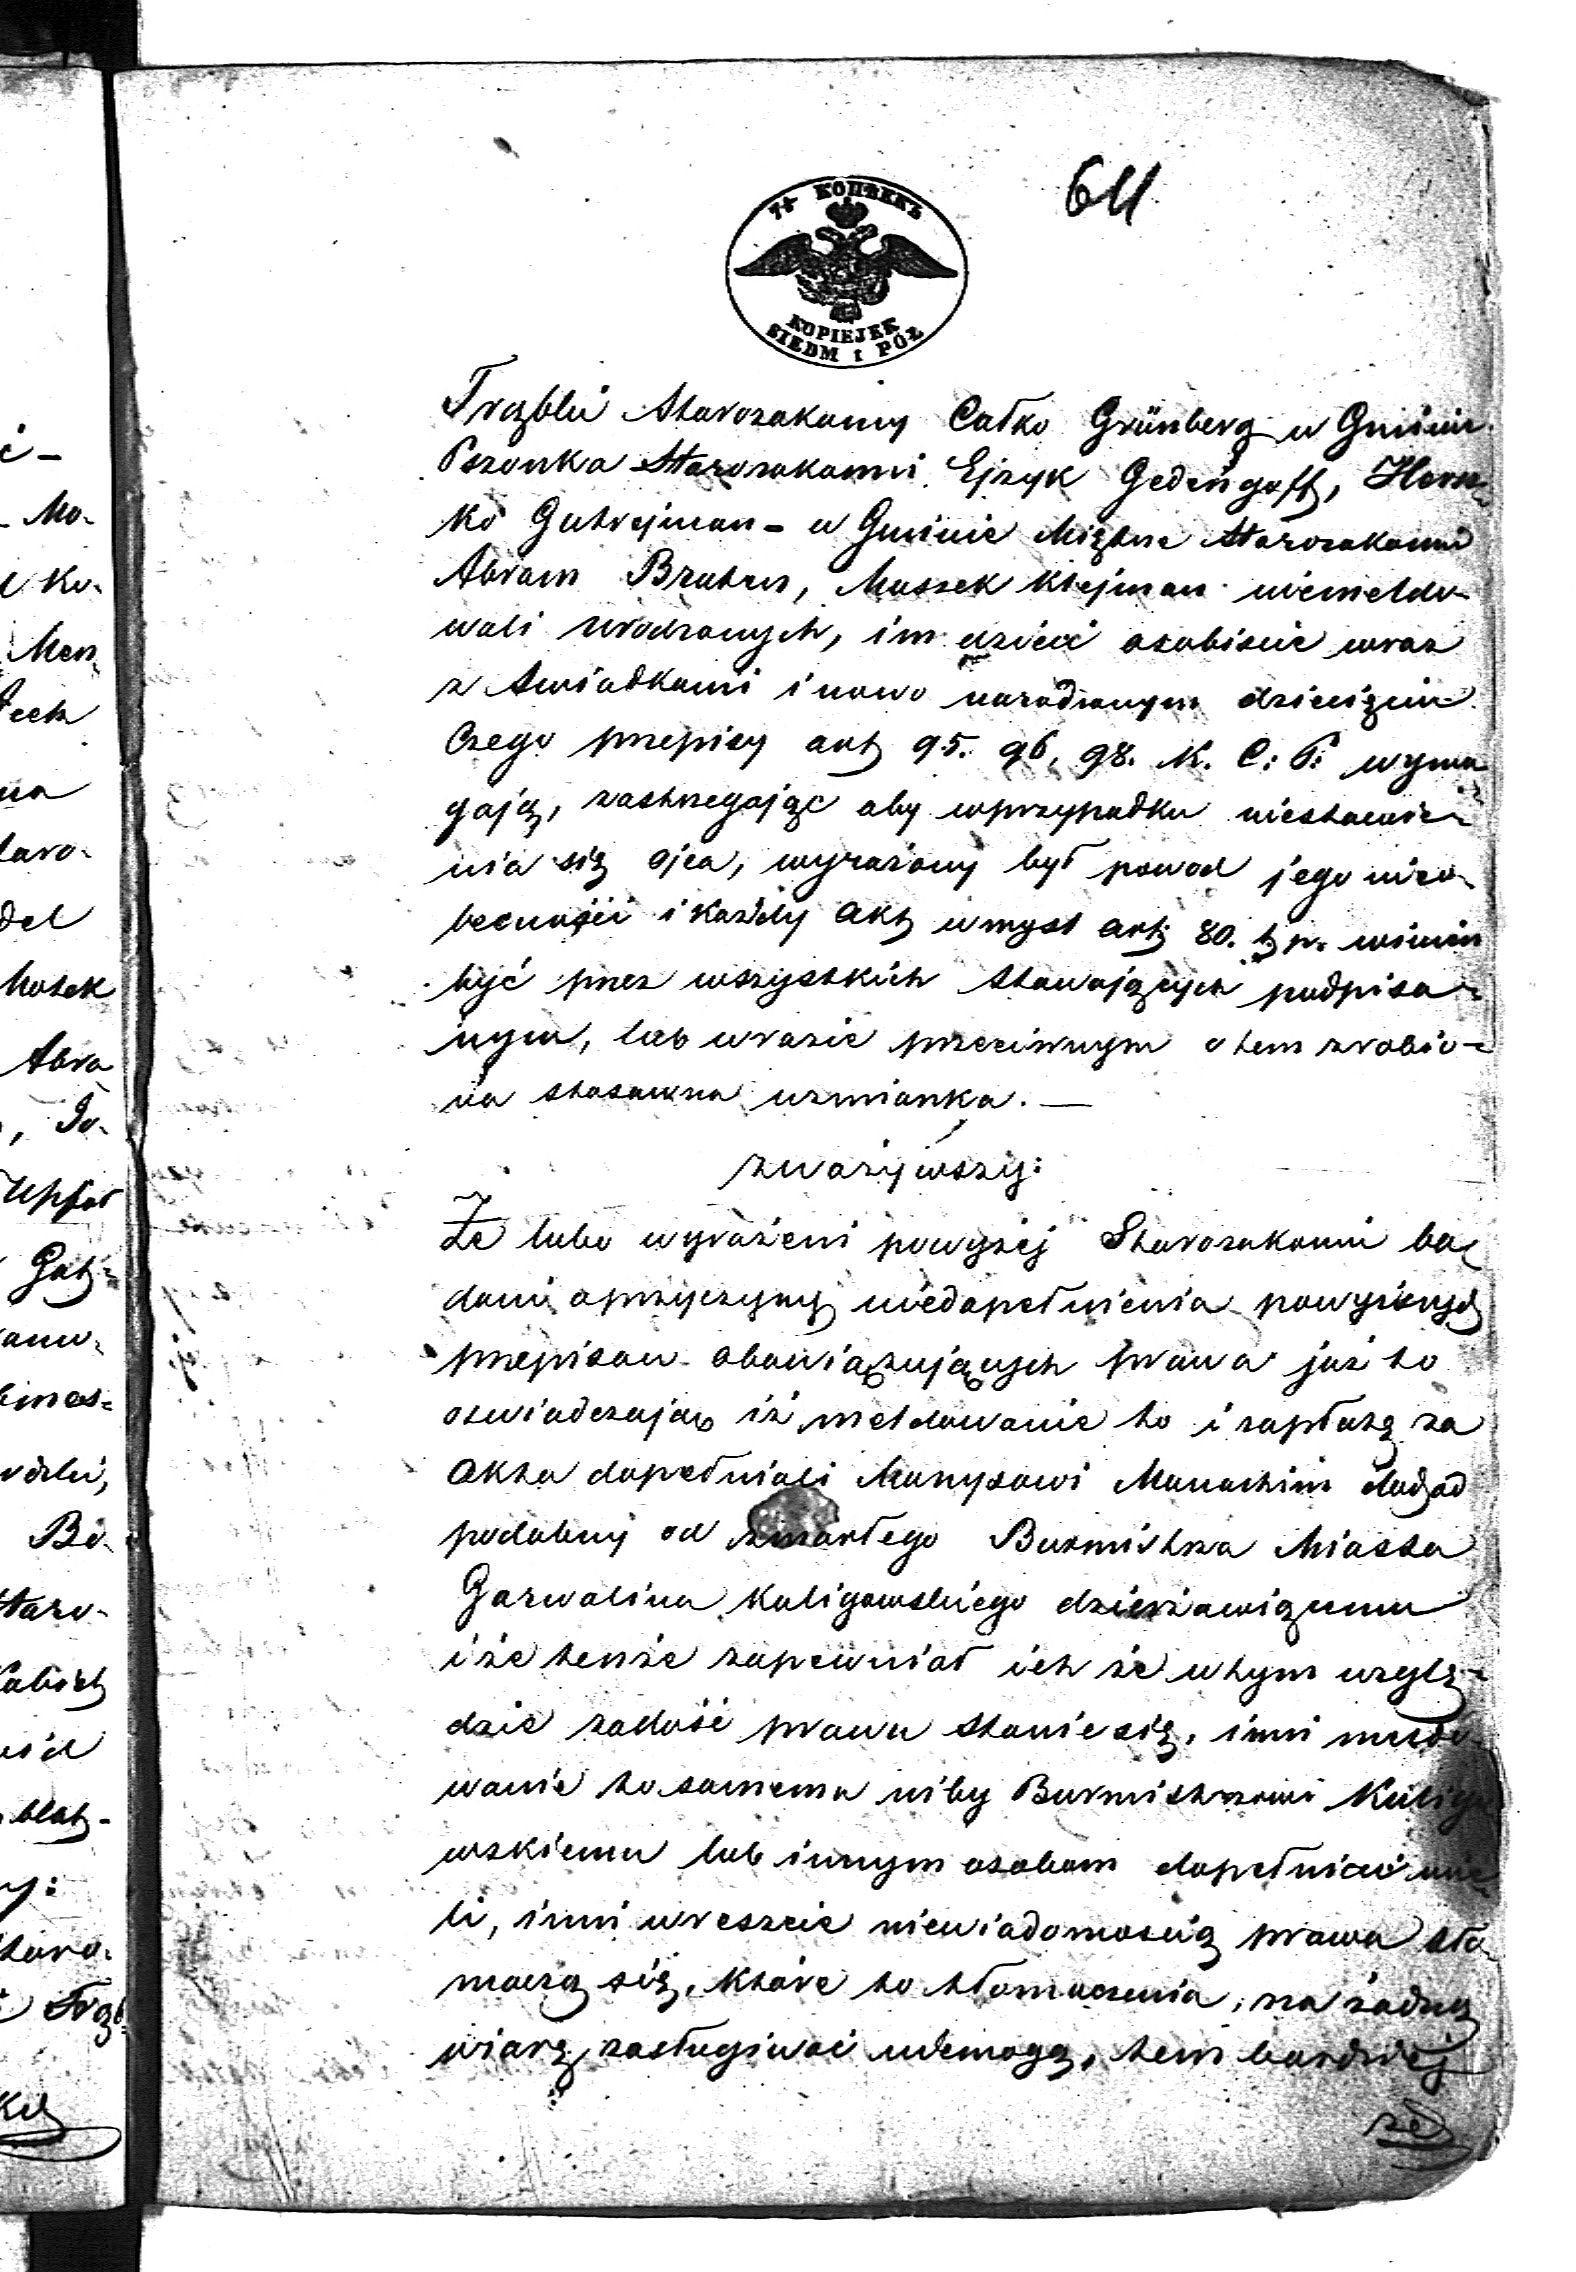 64
7½ КОПѢЕКЪ
KOPIEJEK
SIEDM I PÓŁ
Trąbki Starozakonny Całko Grünberg w Gminie
Pszonka Starozakonni Ejzyk Gedengoft, Hersz
ko Gutrejman - w Gminie Miętne Starozakonni
Abram Bratrn, Moszek Klejman niemeldo-
wali urodzonych, im dzieci osobiście wraz
z Świadkami i nowo narodzonym dziecięciem
Czego przepisy art 95. 96, 98. K. C: P: wyma
gają, zastrzegając aby wprzypadku niestawie-
nia się ojca, wyrażony był powod jego nieo-
becności i każdy Akt wmyśl art: 80. t. p. winien
być przez wszystkich Stawających podpisa-
nym, lub wrazie przeciwnym o tem zrobio-
na stosowna wzmianka. —
zważywszy:
Że lubo wyrażeni powyżej Starozakonni ba
dani oprzyczynę niedopełnienia powyższych
przepisow obowiązujących prawa już to
oświadczają iż meldowanie to i zapłatę za
Akta dopełniali Manysowi Monachim dochod
podobny od zmarłego Burmistrza Miasta
Garwolina Kuligowskiego dzierżawiącemu
i że tenże zapewniał ich że wtym wzglę-
dzie zadość prawu stanie się, inni meldo-
wanie to samemu niby Burmistrzowi Kuligo
wskiemu lub innym osobom dopełniać mie-
li, inni wreszcie niewiadomością prawa tło-
maczą się, które to tłomaczenia, na żadną
wiarę zasługiwać niemogą, tem bardziej
że
ć -
Mo-
Ko-
Men
tech
na
taro-
del
Mosek
Abra
, Jo-
Upfał
Gat-
Be-
Staro-
blat-
y:
Trąb